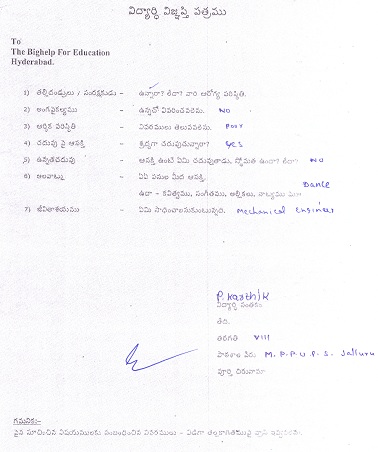 విద్యార్ధి విజ్ఞప్తి పత్రము
To
The Bighelp For Education
Hyderabad.
1) తల్లిదండ్రులు / సంరక్షకుడు - ఉన్నారా? లేదా? వారి ఆరోగ్య పరిస్థితి.
2) అంగవైకల్యము - ఉన్నచో వివరించవలెను. NO
3) ఆర్థిక పరిస్థితి - వివరములు తెలుపవలెను. Poor
4) చదువు పై ఆసక్తి - శ్రద్ధగా చదువుచున్నారా? Yes
5) ఉన్నతచదువు - ఆసక్తి ఉంటే ఏమి చదువుతాడు, స్తోమత ఉందా? లేదా? NO
6) అలవాట్లు - ఏఏ పనుల మీద ఆసక్తి. Dance
ఉదా - కవిత్వము, సంగీతము, అల్లికలు, నాట్యము
7) జీవితాశయము - ఏమి సాధించాలనుకుంటున్నది. Mechanical Engineer
P. Karthik
విద్యార్ధి సంతకం
తేది.
తరగతి VIII
పాఠశాల పేరు M. P. P. U. P. S. Jalluru
పూర్తి చిరునామా
గమనిక:-
పైన సూచించిన విషయములకు సంబంధించిన వివరములు -